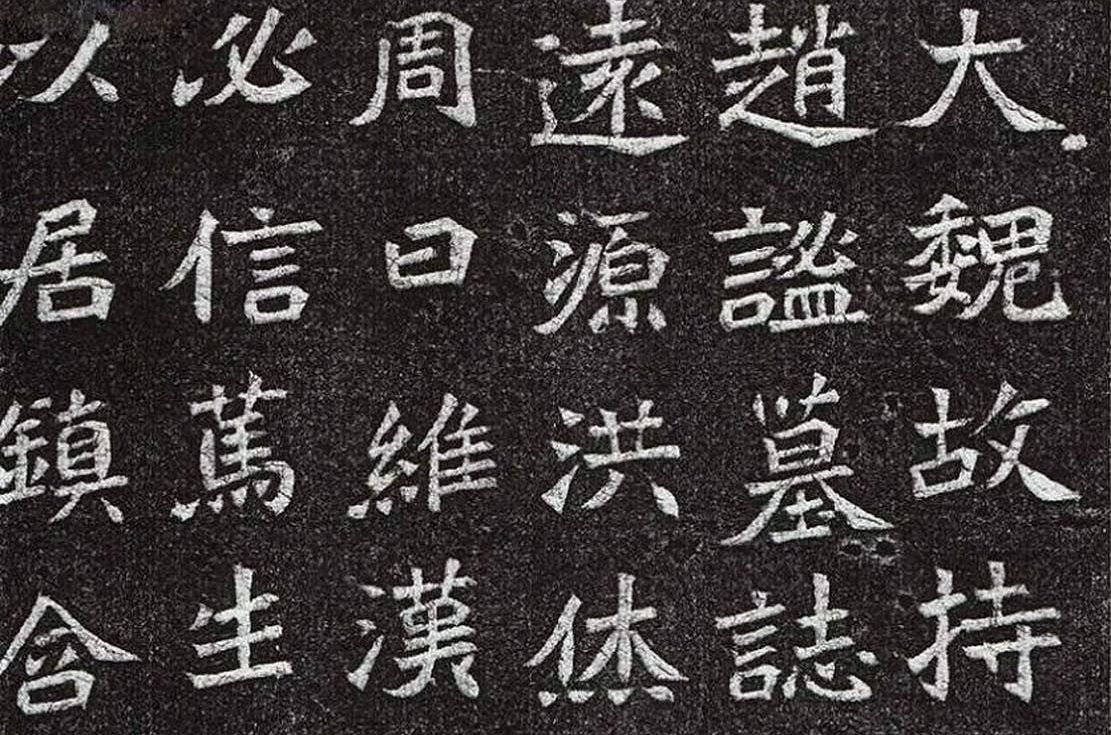 大魏故持
趙謐墓誌
遠源洪烋
周曰維漢
必信篤生
以居鎮含